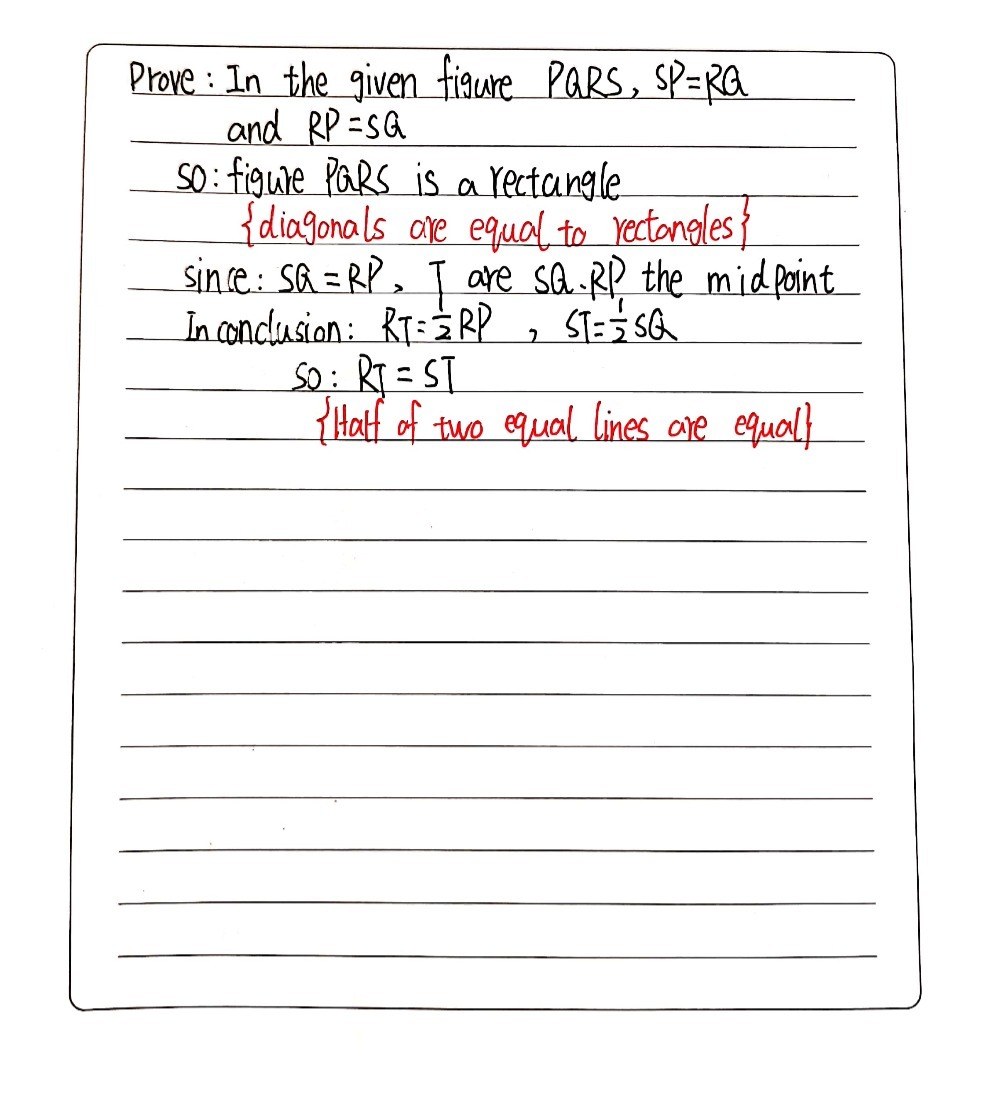 Prove: In the given figure PQRS, SP=RQ
and RP=SQ
so: figure PQRS is a rectangle
{diagonals are equal to rectangles}
since: SQ=RP, T are SQ.RP the midpoint
In conclusion: RT=½RP , ST=½SQ
so: RT=ST
{Half of two equal lines are equal}